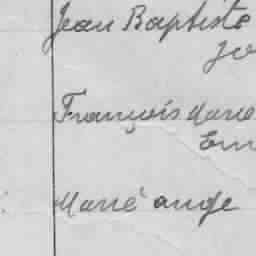 Jean Baptiste
Jo
François Marie
Em
Marie ange